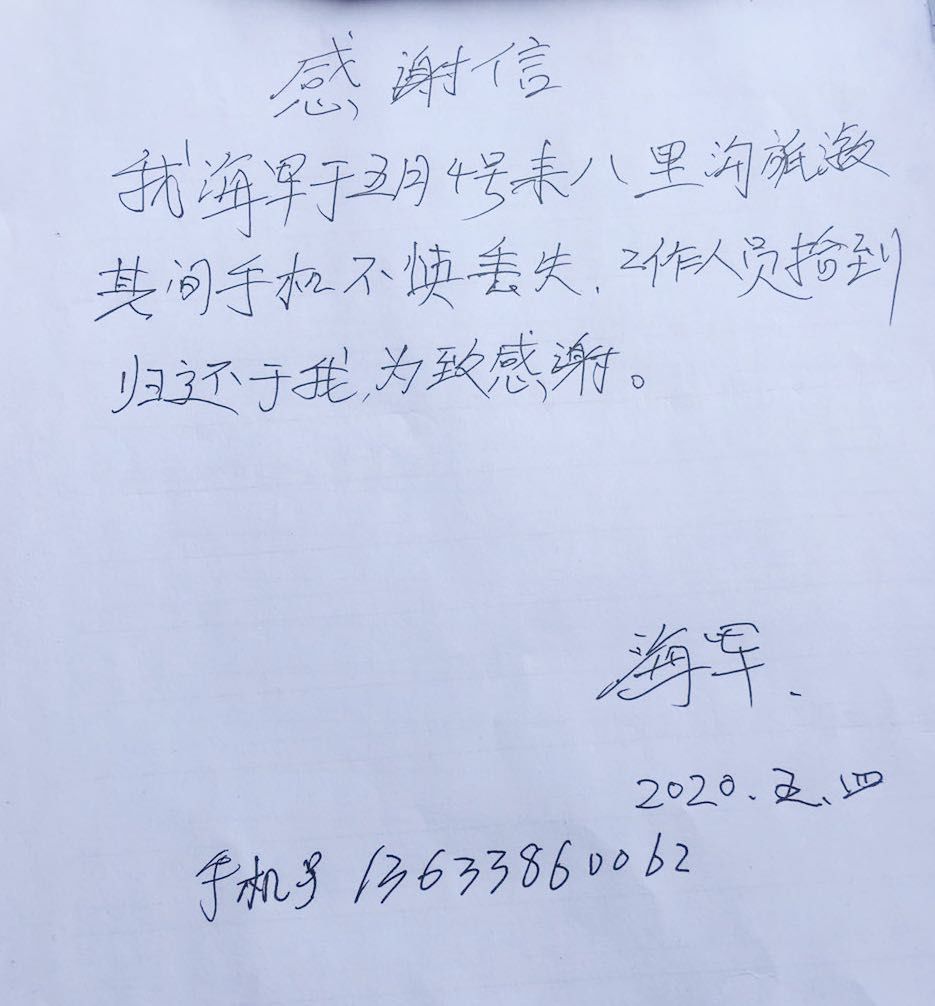 感谢信
我海军于五月4号来八里沟旅游
其间手机不慎丢失,工作人员捡到
归还于我,为致感谢。
海军.
2020.五.四
手机号 13633860062